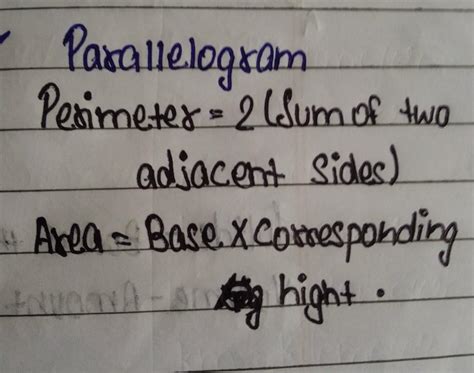 Parallelogram
Perimeter = 2 (Sum of two
adjacent sides)
Area = Base x corresponding
hight .